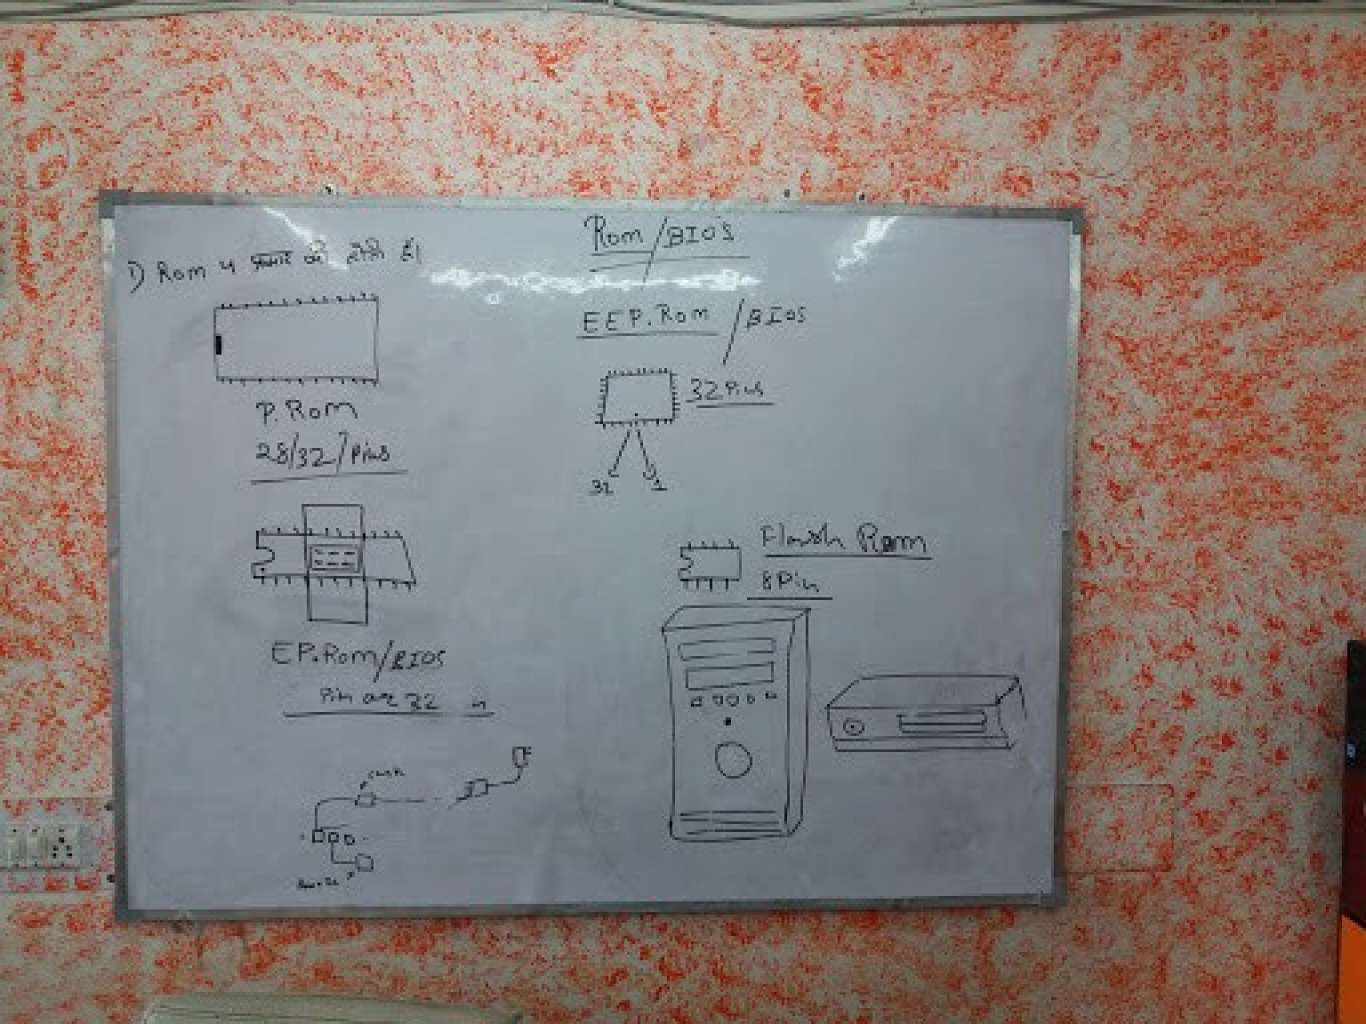 Rom/BIOS
1) Rom 4 प्रकार की होती है।
P.Rom
28/32/Pins
EP.Rom/BIOS
Pin are 32
EEP.Rom /BIOS
32 Pins
32 1
Flash Rom
8 Pin